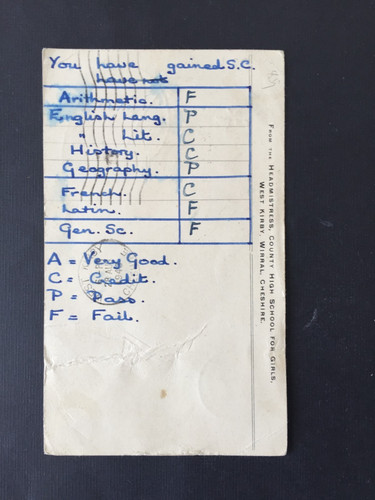 You have gained S.C.
have not
Arithmetic. F
English Lang. P
" Lit. C
History. C
Geography. P
French. C
Latin. F
Gen. Sc. F
A = Very Good.
C = Credit.
P = Pass.
F = Fail.
FROM THE HEADMISTRESS, COUNTY HIGH SCHOOL FOR GIRLS,
WEST KIRBY, WIRRAL, CHESHIRE.